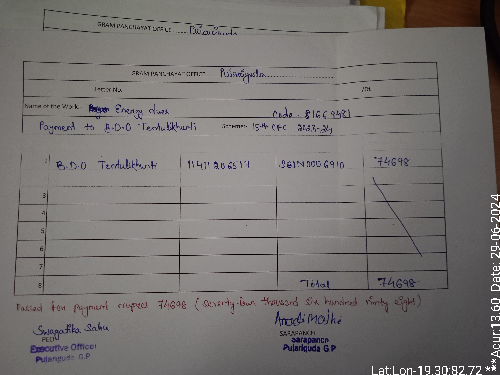 GRAM PANCHAYAT OFFICE
GRAM PANCHAYAT OFFICE Pulariguda
Letter No. /Dt.
Name of the Work:- Energy dues Code - 81669421
Payment to B.D.O Tentulikhunti Scheme:- 15th CFC 2023-24
1 B.D.O Tentulikhunti 11411206517 SBIN0006910 74698
3
4
5
6
7
8 Total 74698
Passed for payment rupees 74698 (Seventy four thousand six hundred ninty eight)
Swagatika Sahu
PEO
Executive Officer
Pulariguda G.P
SARAPANCH
Sarapanch
Pulariguda G.P
Lat:Lon-19.30:82.72 **Acur:13.60 Date: 29-06-2024